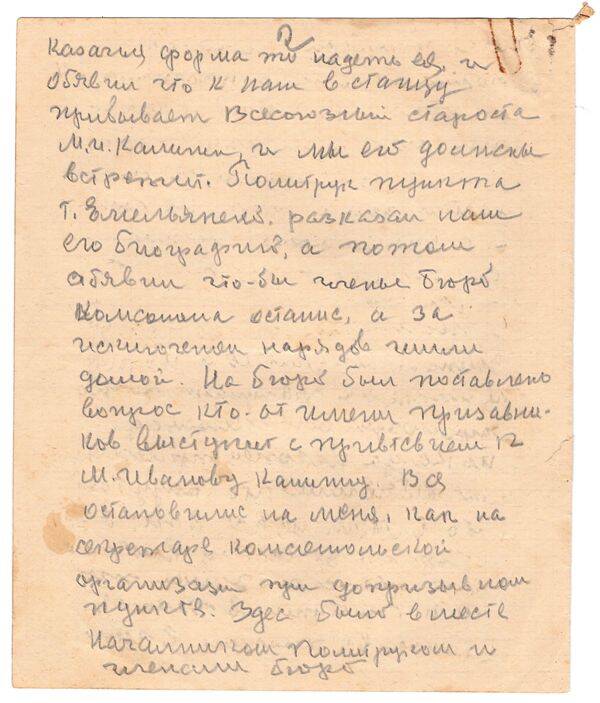 2
казачья форма то надеть ея, и
обявил что к нам в станцу
прибывает Всесоюзный староста
М.И. Калинин, и мы его должны
встретит. Политрук пункта
т. Емельянено. разказал нам
его биографию, а потом
обявил что-бы члены бюро
Комсомола остались, а за
исключенем нарядов шли
домой. На бюро был поставлено
вопрос кто-от имени призавни-
ков выступит с приветсвием к
М. Иванову Калинину. Вся
остановились на меня, как на
секретаре комсомольской
организаци при допризывном
пункте. Здес было вместе
Началником Политруком и
членами бюро